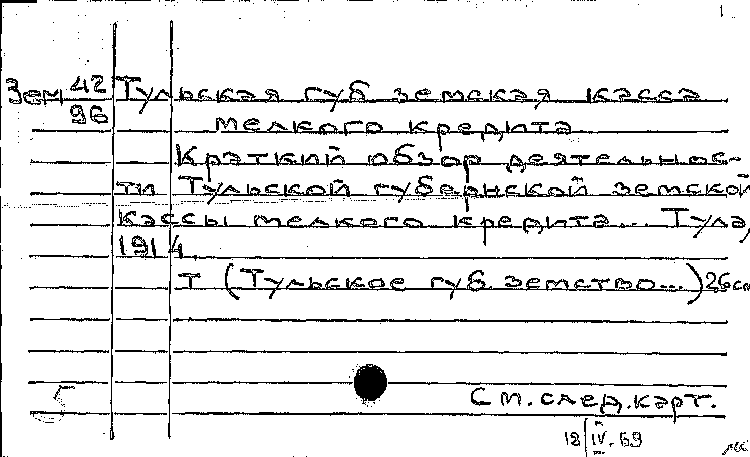 1
Зем 42 Тульская губ земская касса
96 мелкого кредита.
Краткий обзор деятельнос-
ти Тульской губернской земской
кассы мелкого кредита... Тула,
1914.
т (Тульское губ. земство...) 26см
5 См. след. карт.
18/IV-69